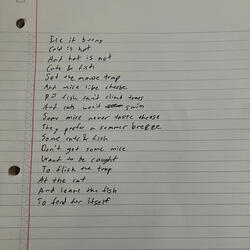 Ice it burns
Cold is hot
And hot is not
Cats & fish
Set the mouse trap
And mice like cheese
But fish can't climb trees
And cats won't swim
Some mice never taste cheese
They prefer a summer breeze
Some cats & fish
Don't get some mice
Want to be caught
To flick the trap
At the cat
And leave the fish
To fend for itself